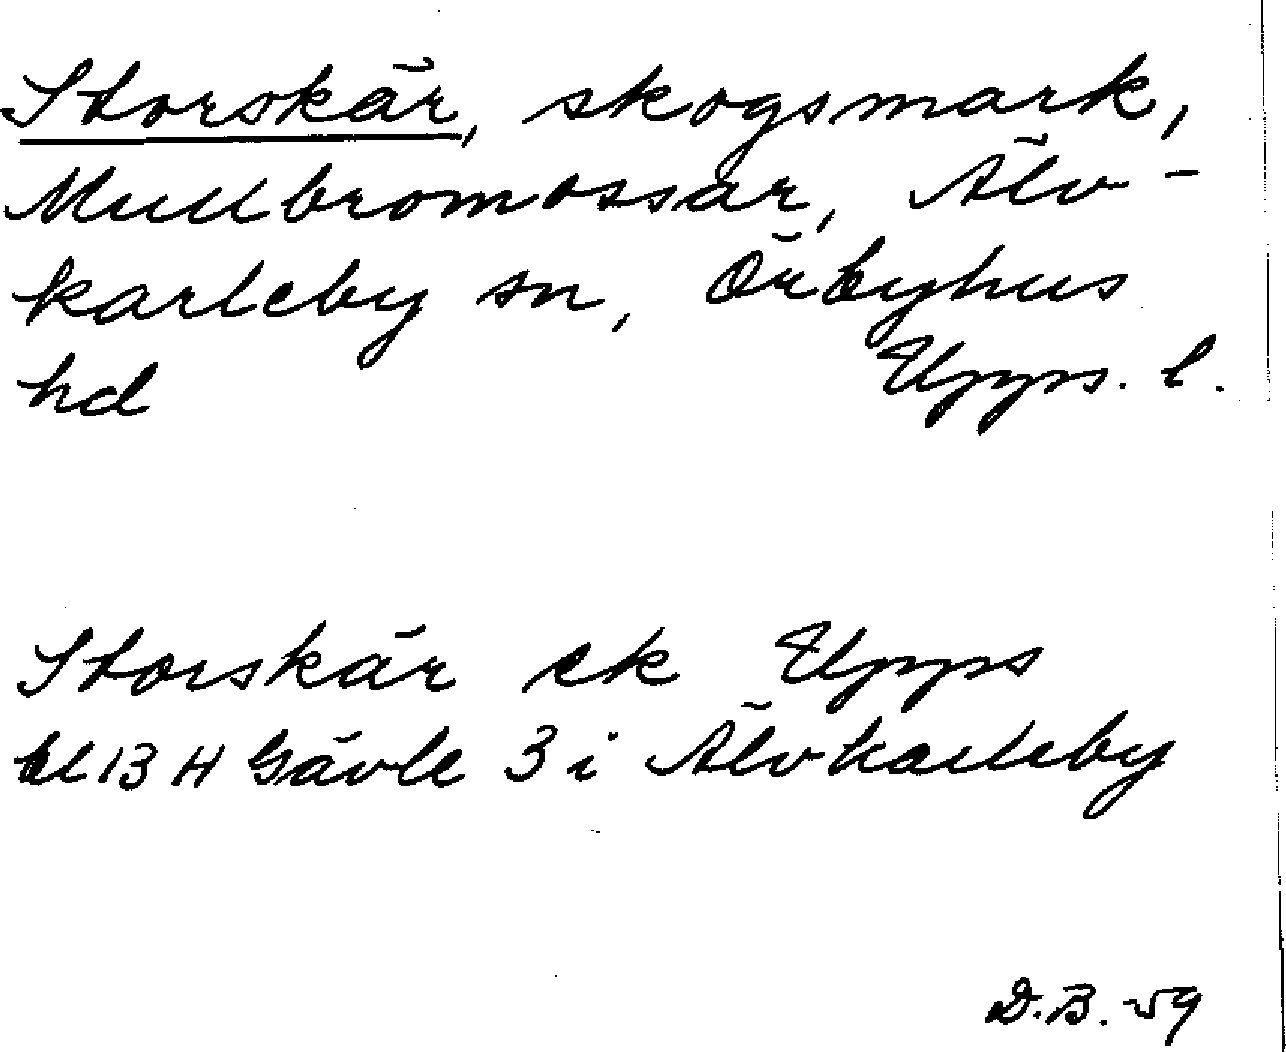 Storskär, skogsmark,
Mullbromossar, Älv-
karleby sn, Örbyhus
hd Upps. l.
Storskär ek Upps
bl 13 H Gävle 3 i Älvkarleby
D.B. -59